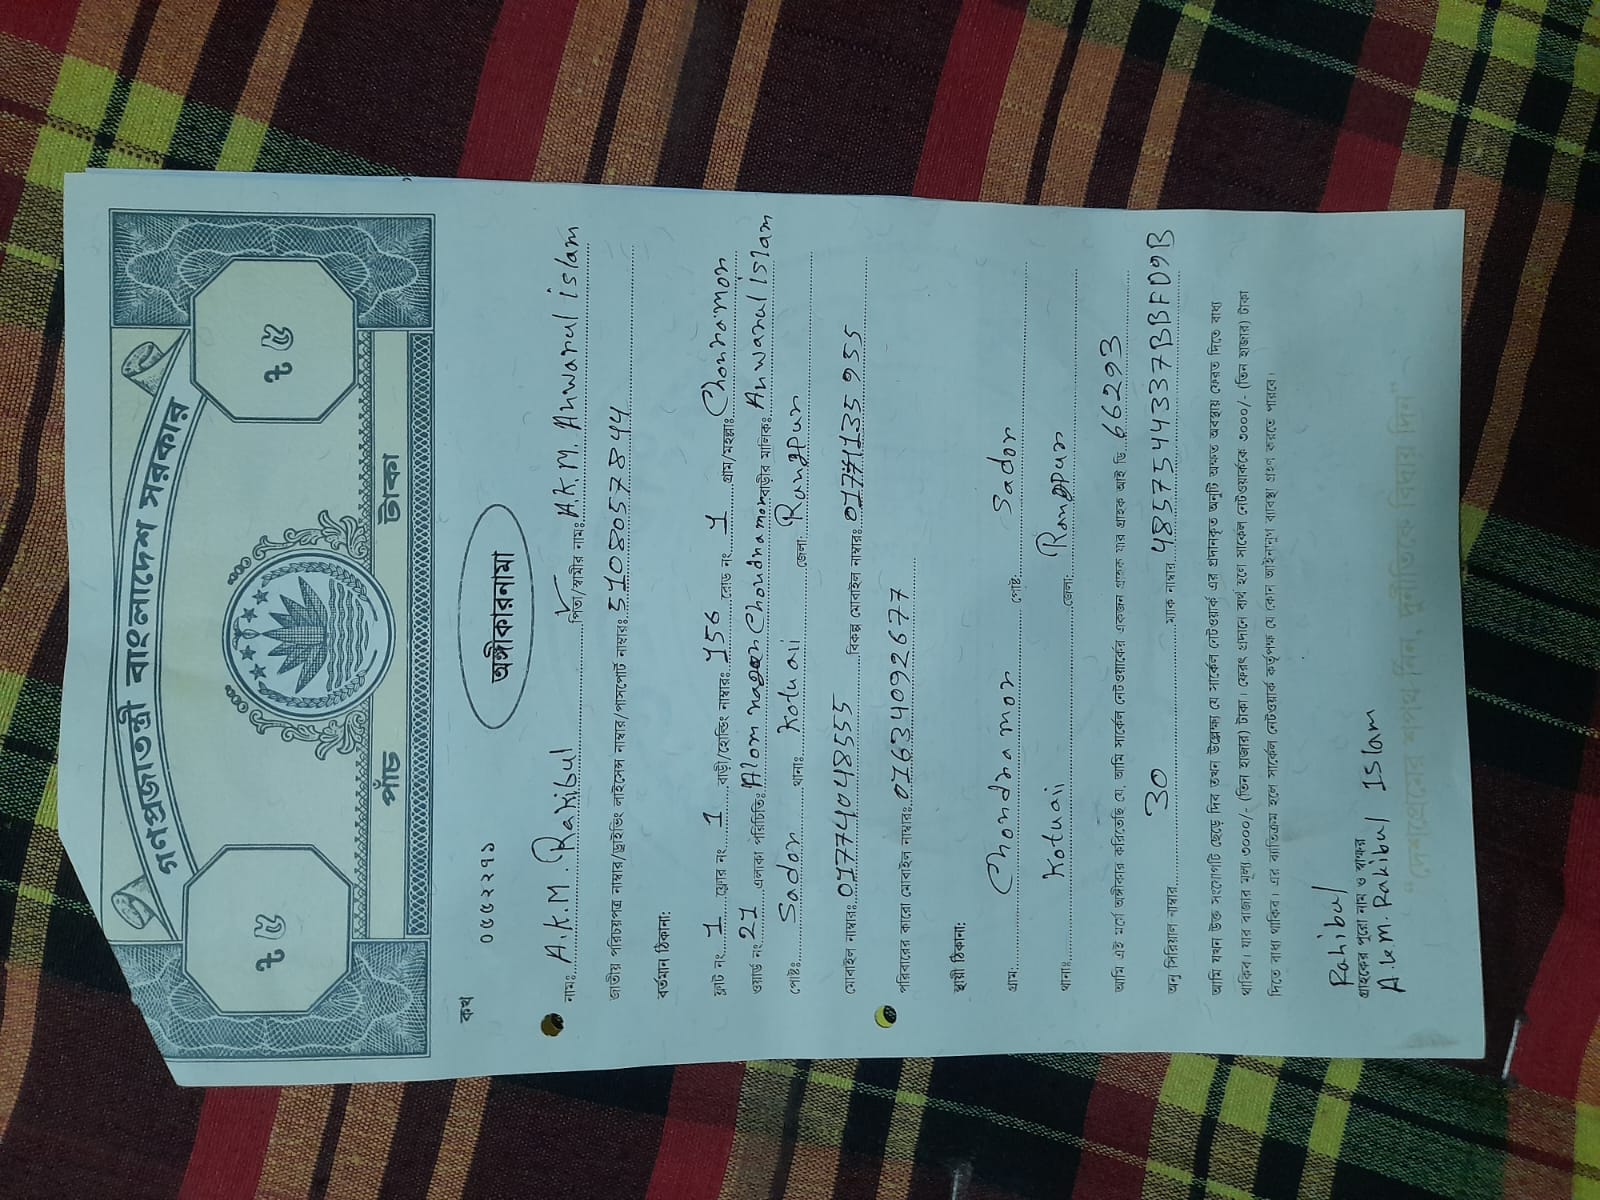 গণপ্রজাতন্ত্রী বাংলাদেশ সরকার
৳ ৫
৳ ৫
পাঁচ টাকা
কখ ০৫৫২২৭১
অঙ্গীকারনামা
নামঃ A.K.M. Rakibul পিতা/স্বামীর নামঃ A.K.M. Anwarul islam
জাতীয় পরিচয়পত্র নাম্বার/ড্রাইভিং লাইসেন্স নাম্বার/পাসপোর্ট নাম্বারঃ 5108057844
বর্তমান ঠিকানা:
ফ্লাট নং 1 ফ্লোর নং 1 বাড়ী/হোল্ডিং নাম্বারঃ 156 রোড নং 1 গ্রাম/মহল্লাঃ Chonnamon
ওয়ার্ড নং 21 এলাকা পরিচিতিঃ Alom nagon Chondnamon বাড়ীর মালিকঃ Anwarul islam
পোষ্টঃ Sadon থানাঃ Kotuaii জেলা: Rangpur
মোবাইল নাম্বারঃ 01774048555 বিকল্প মোবাইল নাম্বারঃ 01771135955
পরিবারের কারো মোবাইল নাম্বারঃ 01634092677
স্থায়ী ঠিকানা:
গ্রাম: Chondnamon পোষ্ট: Sadon
থানাঃ Kotuaii জেলা: Rangpur
আমি এই মর্মে অঙ্গীকার করিতেছি যে, আমি সার্কেল নেটওয়ার্কের একজন গ্রাহক যার গ্রাহক আই ডি 66293
অনু সিরিয়াল নাম্বার 30 ম্যাক নাম্বার 4857544337BBFD9B
আমি যখন উক্ত সংযোগটি ছেড়ে দিব তখন উল্লেক্ষ্য যে সার্কেল নেটওয়ার্ক এর প্রদানকৃত অনুটি অক্ষত অবস্থায় ফেরত দিতে বাধ্য
থাকিব। যার বাজার মূল্য ৩০০০/- (তিন হাজার) টাকা। ফেরৎ প্রদানে ব্যর্থ হলে সার্কেল নেটওয়ার্ককে ৩০০০/- (তিন হাজার) টাকা
দিতে বাধ্য থাকিব। এর ব্যতিক্রম হলে সার্কেল নেটওয়ার্ক কর্তৃপক্ষ যে কোন আইনানুগ ব্যবস্থা গ্রহণ করতে পারবে।
Rakibul
গ্রাহকের পুরো নাম ও স্বাক্ষর
A.k.m. Rakibul Islam
"দেশপ্রেমের শপথ নিন, দুর্নীতিকে বিদায় দিন"